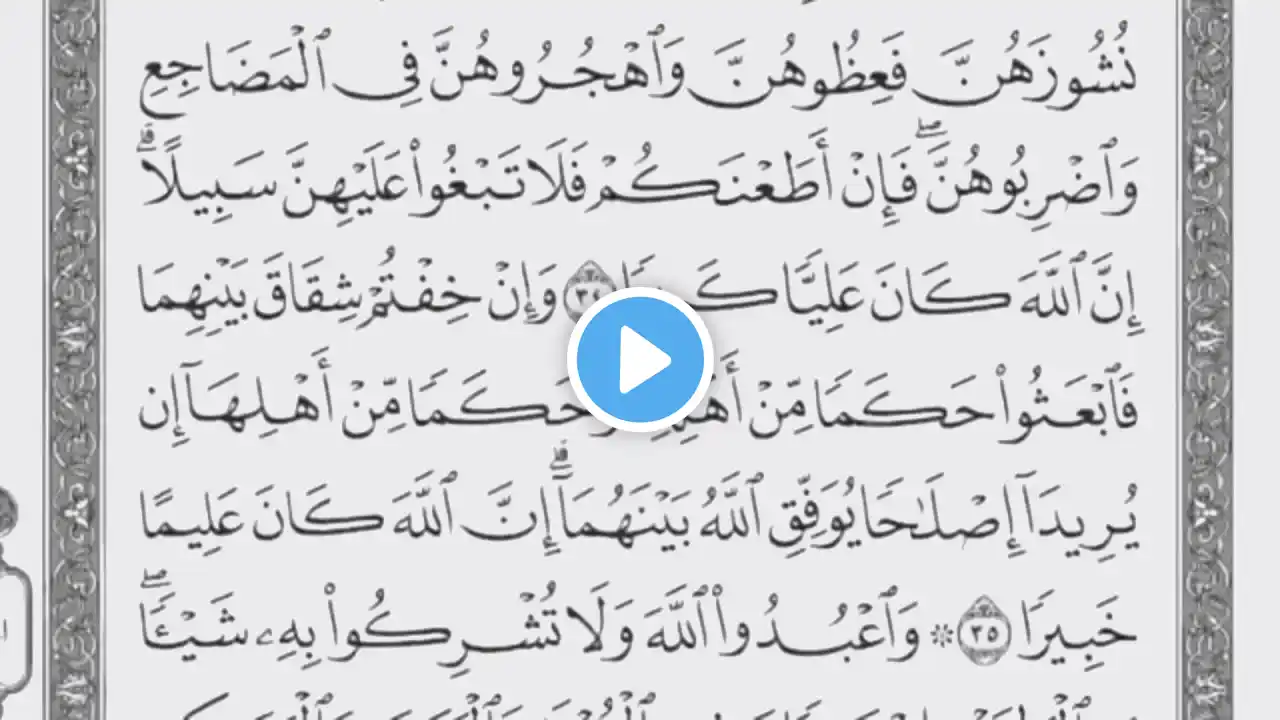 نُشُوزَهُنَّ فَعِظُوهُنَّ وَٱهْجُرُوهُنَّ فِى ٱلْمَضَاجِعِ
وَٱضْرِبُوهُنَّ ۖ فَإِنْ أَطَعْنَكُمْ فَلَا تَبْغُوا۟ عَلَيْهِنَّ سَبِيلًا ۗ
إِنَّ ٱللَّهَ كَانَ عَلِيًّا ٣٤ وَإِنْ خِفْتُمْ شِقَاقَ بَيْنِهِمَا
فَٱبْعَثُوا۟ حَكَمًا مِّنْ حَكَمًا مِّنْ أَهْلِهَآ إِن
يُرِيدَآ إِصْلَٰحًا يُوَفِّقِ ٱللَّهُ بَيْنَهُمَآ ۗ إِنَّ ٱللَّهَ كَانَ عَلِيمًا
خَبِيرًا ٣٥ ۞ وَٱعْبُدُوا۟ ٱللَّهَ وَلَا تُشْرِكُوا۟ بِهِۦ شَيْـًٔا ۖ